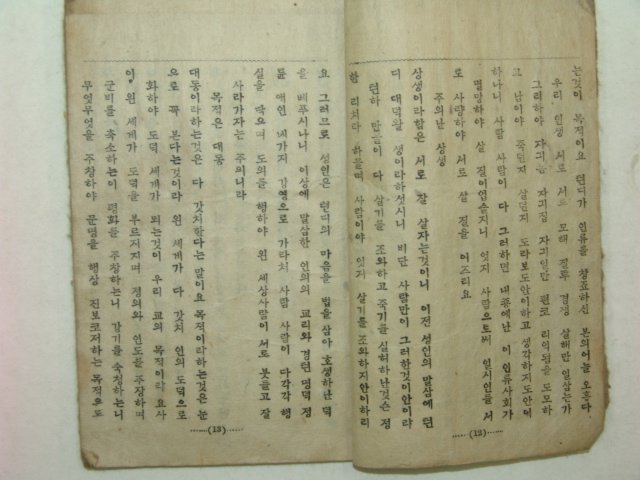 는것이 목적이요 텬디가 인류를 창죠하신 본의어늘 오흡다
우리 인생 서로 서로 모해 질투 경쟁 살해만 일삼는가
그리하야 자긔몸 자긔집 자긔일만 편코 리익됨을 도모하
고 남이야 죽던지 살던지 도라보도안이하고 생각하지도안어
하나니 사람 사람이 다 그러하면 내죵에난 이 인류사회가
멸망하야 살 질이업슬지니 엇지 사람으로써 일시인들 서
로 사랑하야 서로 살 질을 어즈리요
주의난 상생
상생이라함은 서로 잘 살자는것이니 이전 성인의 말삼에 텬
디 대덕왈 생이라하섯시니 비단 사람만이 그러한것이안이라
텬하 만물이 다 살기를 조와하고 죽기를 실허하난것슨 정
한 리치라 하물며 사람이야 엇지 살기를 조와하지안이하리
(12)
요 그러므로 성인은 텬디의 마음을 법을삼아 호생하난 덕
을 베푸시나니 이상에 말삼한 인의의 교리와 경텬 명덕 정
륜 애인 네가지 강영으로 가라처 사람 사람이 다각각 행
실을 닥으며 도의를 행하야 왼 세상사람이 서로 붓들고 잘
사라가자는 주의니라
목적은 대동
대동이라하는것은 다 갓치한다는 말이요 목적이라하는것은 눈
으로 꼭 본다는것이라 왼 세계가 다 갓치 인의 도덕으로
화하야 도덕 세계가 되는것이 우리 교의 목적이라 요사
이 왼 세계가 도덕을 부르지지며 정의와 인도를 주장하며
군비를 축소하는이 평화를 주창하는니 감기를 숙청하는니
무엇무엇을 주창하야 문명을 행상 진보코저하는 목적으로
(13)